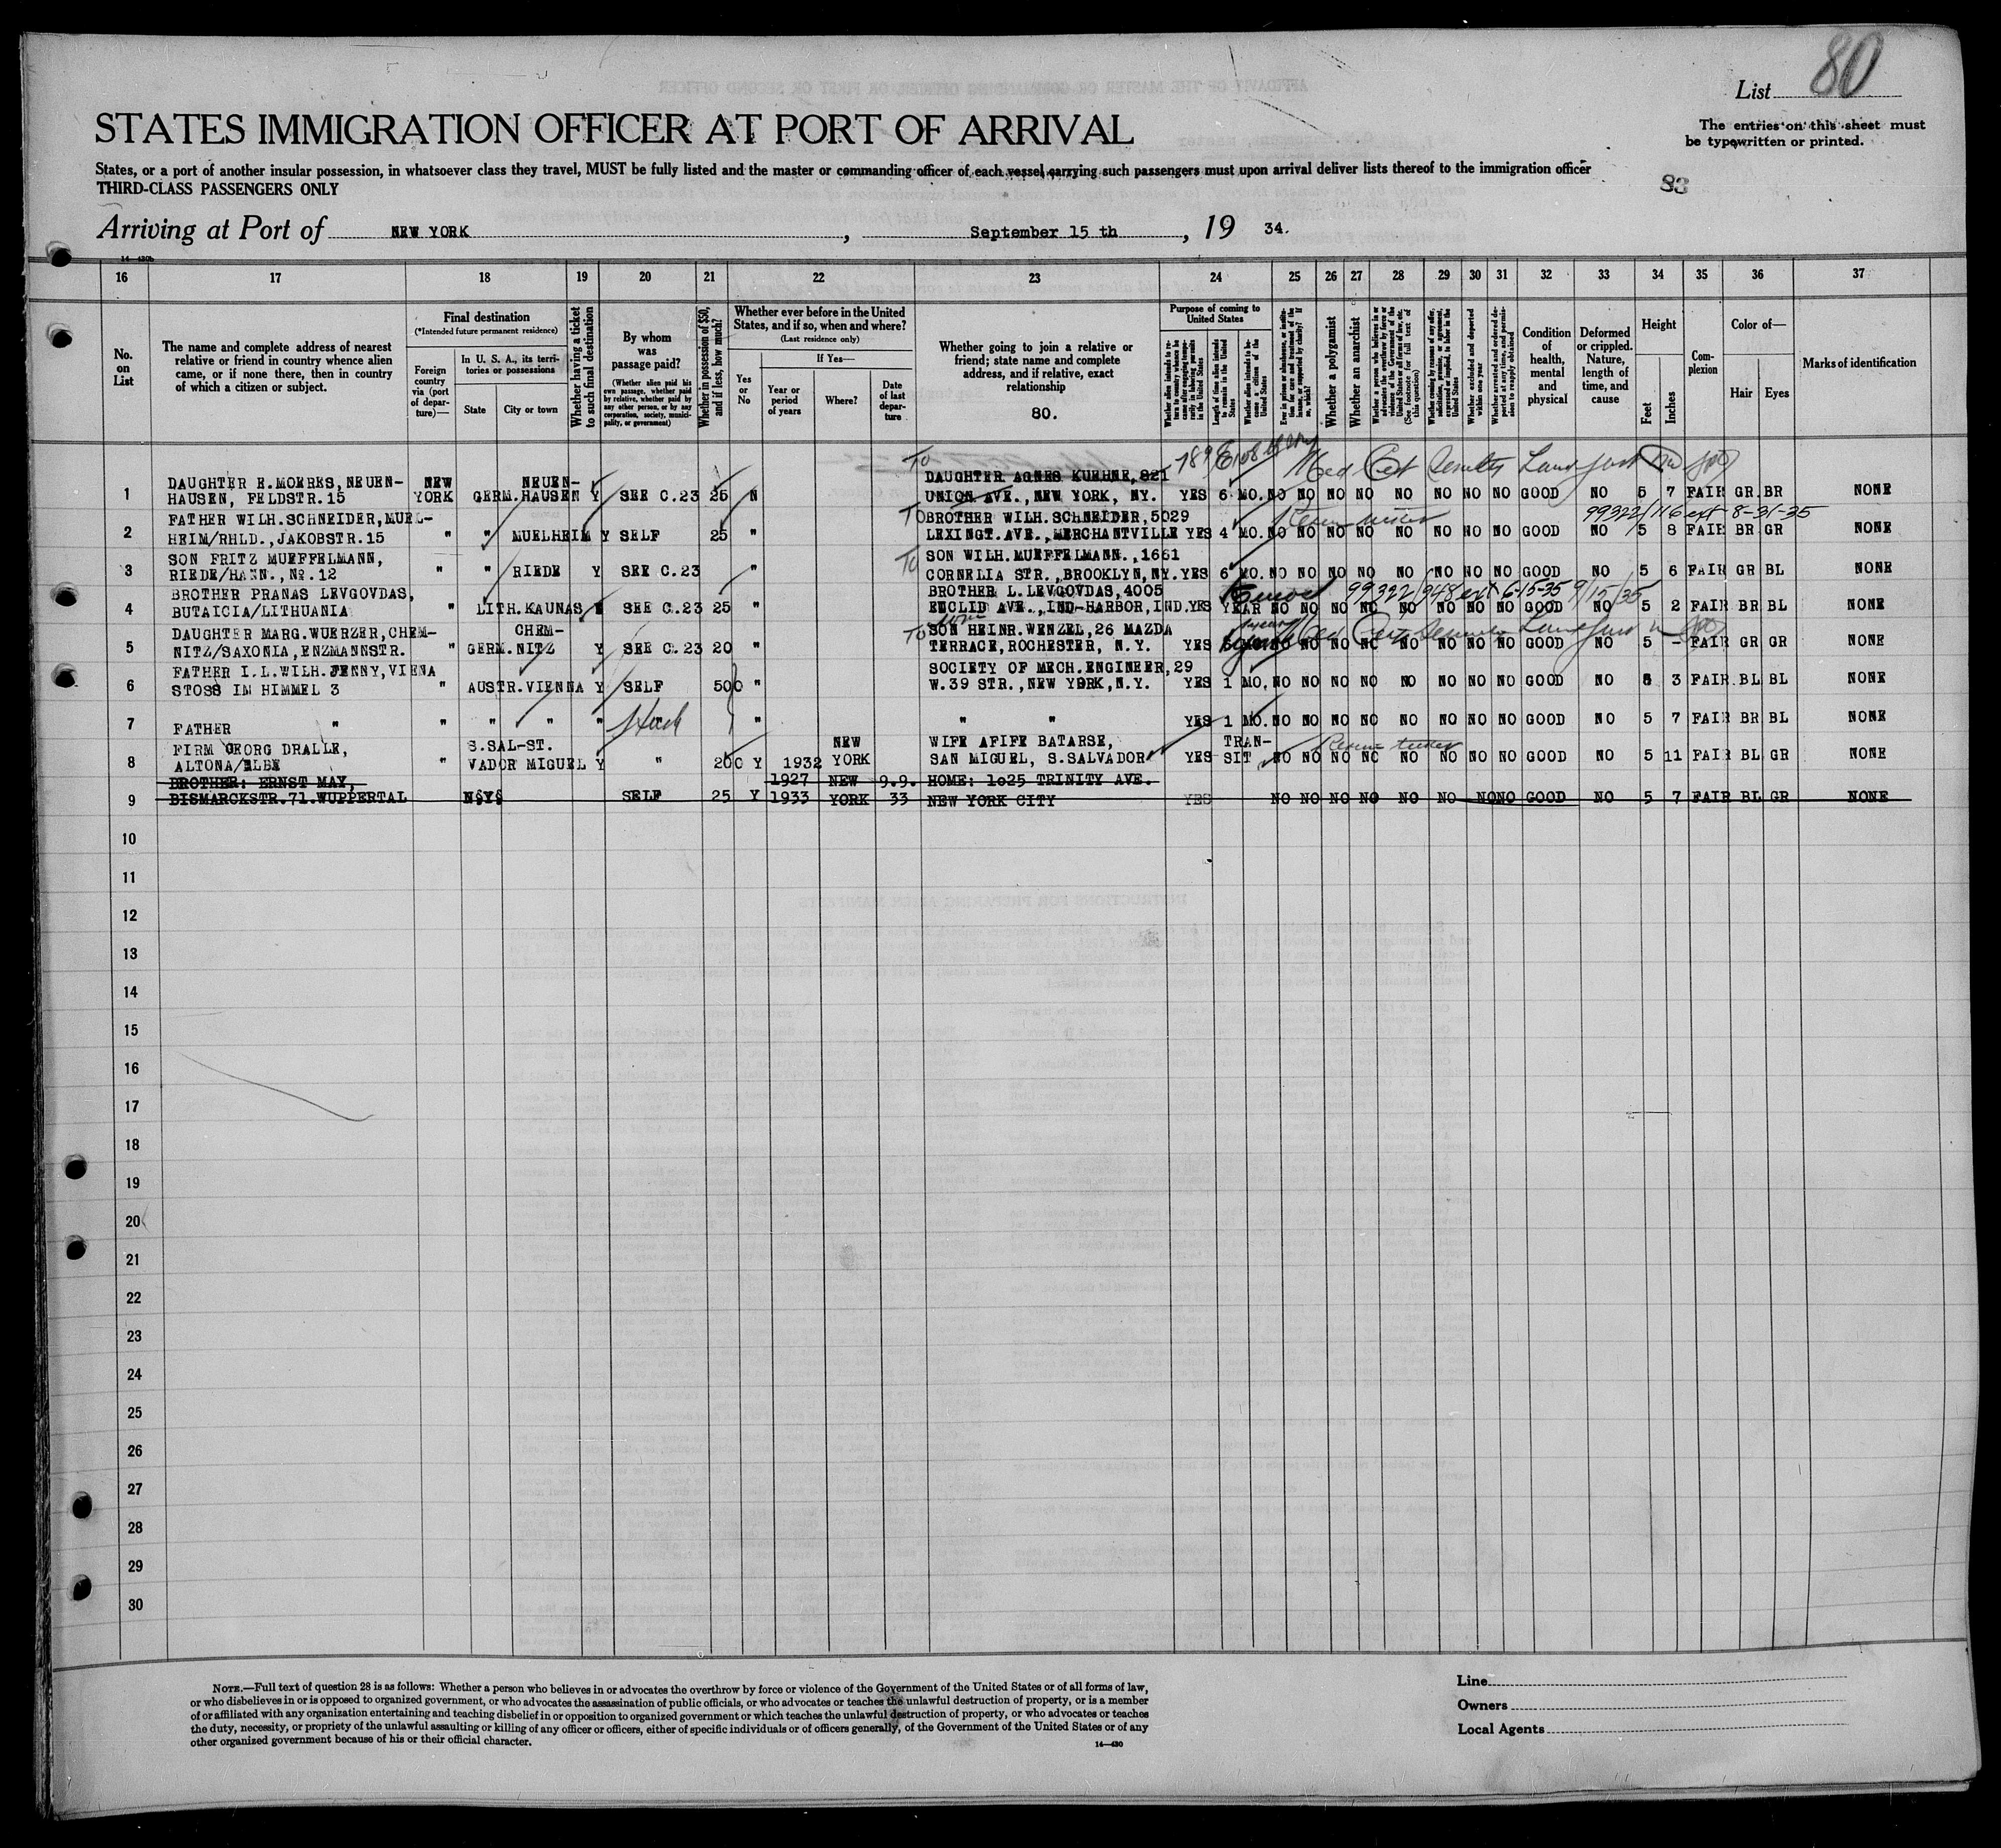 80
List
STATES IMMIGRATION OFFICER AT PORT OF ARRIVAL
The entries on this sheet must
be typewritten or printed.
States, or a port of another insular possession, in whatsoever class they travel, MUST be fully listed and the master or commanding officer of each vessel carrying such passengers must upon arrival deliver lists thereof to the immigration officer
THIRD-CLASS PASSENGERS ONLY
83
Arriving at Port of NEW YORK, September 15 th, 19 34.
14—430b
16 17 18 19 20 21 22 23 24 25 26 27 28 29 30 31 32 33 34 35 36 37
No. on List
The name and complete address of nearest relative or friend in country whence alien came, or if none there, then in country of which a citizen or subject.
Final destination
(*Intended future permanent residence)
Foreign country via (port of departure)—
In U. S. A., its territories or possessions
State
City or town
Whether having a ticket to such final destination
By whom was passage paid?
(Whether alien paid his own passage, whether paid by relative, whether paid by any other person, or by any corporation, society, municipality, or government)
Whether in possession of $50, and if less, how much?
Whether ever before in the United States, and if so, when and where?
(Last residence only)
Yes or No
If Yes—
Year or period of years
Where?
Date of last departure
Whether going to join a relative or friend; state name and complete address, and if relative, exact relationship
80.
Purpose of coming to United States
Whether alien intends to return to country whence he came after engaging temporarily in laboring pursuits in the United States
Length of time alien intends to remain in the United States
Whether alien intends to become a citizen of the United States
Ever in prison or almshouse, or institution for care and treatment of the insane, or supported by charity? If so, which?
Whether a polygamist
Whether an anarchist
(See footnote for full text of this question)
Whether coming by reason of any offer, solicitation, promise, or agreement, expressed or implied, to labor in the United States
Whether excluded and deported within one year
Whether arrested and ordered deported at any time, and permission to reapply obtained
Condition of health, mental and physical
Deformed or crippled. Nature, length of time, and cause
Height
Feet
Inches
Complexion
Color of—
Hair
Eyes
Marks of identification
To 789 E 108
DAUGHTER E.MOERKS,NEUEN- NEW NEUEN- DAUGHTER AGNES KUEHNE,821
1 HAUSEN, FELDSTR.15 YORK GERM.HAUSEN Y SEE C.23 25 N UNION AVE.,NEW YORK, NY. YES 6 MO. NO NO NO NO NO NO NO NO GOOD NO 5 7 FAIR GR BR NONE
FATHER WILH.SCHNEIDER,MUEL- To BROTHER WILH.SCHNEIDER,5029 99322/116 ext 8-31-35
2 HEIM/RHLD.,JAKOBSTR.15 " " MUELHEIM Y SELF 25 " LEXINGT.AVE.,MERCHANTVILLE YES 4 MO. NO NO NO NO NO NO NO NO GOOD NO 5 8 FAIR BR GR NONE
SON FRITZ MUEFFELMANN, To SON WILH.MUEFFELMANN.,1661
3 RIEDE/HANN.,No.12 " " RIEDE Y SEE C.23 " CORNELIA STR.,BROOKLYN,NY. YES 6 MO. NO NO NO NO NO NO NO NO GOOD NO 5 6 FAIR GR BL NONE
BROTHER PRANAS LEVGOVDAS, BROTHER L.LEVGOVDAS,4005 99322/948 ext 6-15-35 9/15/35
4 BUTAICIA/LITHUANIA " LITH.KAUNAS SEE C.23 25 " EUCLID AVE.,IND-HARBOR,IND. YES YEAR NO NO NO NO NO NO NO NO GOOD NO 5 2 FAIR BR BL NONE
DAUGHTER MARG.WUERZER,CHEM- CHEM- To SON HEINR.WENZEL,26 MAZDA
5 NITZ/SAXONIA,ENZMANNSTR. " GERM.NITZ Y SEE C.23 20 " TERRACE,ROCHESTER, N.Y. YES NO NO NO NO NO NO NO NO GOOD NO 5 - FAIR GR GR NONE
FATHER I.L.WILH.JENNY,VIENA SOCIETY OF MECH.ENGINEER,29
6 STOSS IM HIMMEL 3 " AUSTR.VIENNA Y SELF 500 " W.39 STR.,NEW YORK,N.Y. YES 1 MO. NO NO NO NO NO NO NO NO GOOD NO 5 3 FAIR BL BL NONE
7 FATHER " " " " " " " " YES 1 MO. NO NO NO NO NO NO NO NO GOOD NO 5 7 FAIR BR BL NONE
FIRM GEORG DRALLE, S.SAL-ST. NEW WIFE AFIFE BATARSE, TRAN-
8 ALTONA/ELBE " VADOR MIGUEL Y " 200 Y 1932 YORK SAN MIGUEL, S.SALVADOR YES SIT NO NO NO NO NO NO NO NO GOOD NO 5 11 FAIR BL GR NONE
BROTHER: ERNST MAY, 1927 NEW 9.9. HOME: 1o25 TRINITY AVE.
9 BISMARCKSTR.71.WUPPERTAL N§Y§ SELF 25 Y 1933 YORK 33 NEW YORK CITY YES NO NO NO NO NO NO NO NO GOOD NO 5 7 FAIR BL GR NONE
10
11
12
13
14
15
16
17
18
19
20
21
22
23
24
25
26
27
28
29
30
NOTE.—Full text of question 28 is as follows: Whether a person who believes in or advocates the overthrow by force or violence of the Government of the United States or of all forms of law,
or who disbelieves in or is opposed to organized government, or who advocates the assassination of public officials, or who advocates or teaches the unlawful destruction of property, or is a member
of or affiliated with any organization entertaining and teaching disbelief in or opposition to organized government or which teaches the unlawful destruction of property, or who advocates or teaches
the duty, necessity, or propriety of the unlawful assaulting or killing of any officer or officers, either of specific individuals or of officers generally, of the Government of the United States or of any
other organized government because of his or their official character.
14—430
Line
Owners
Local Agents